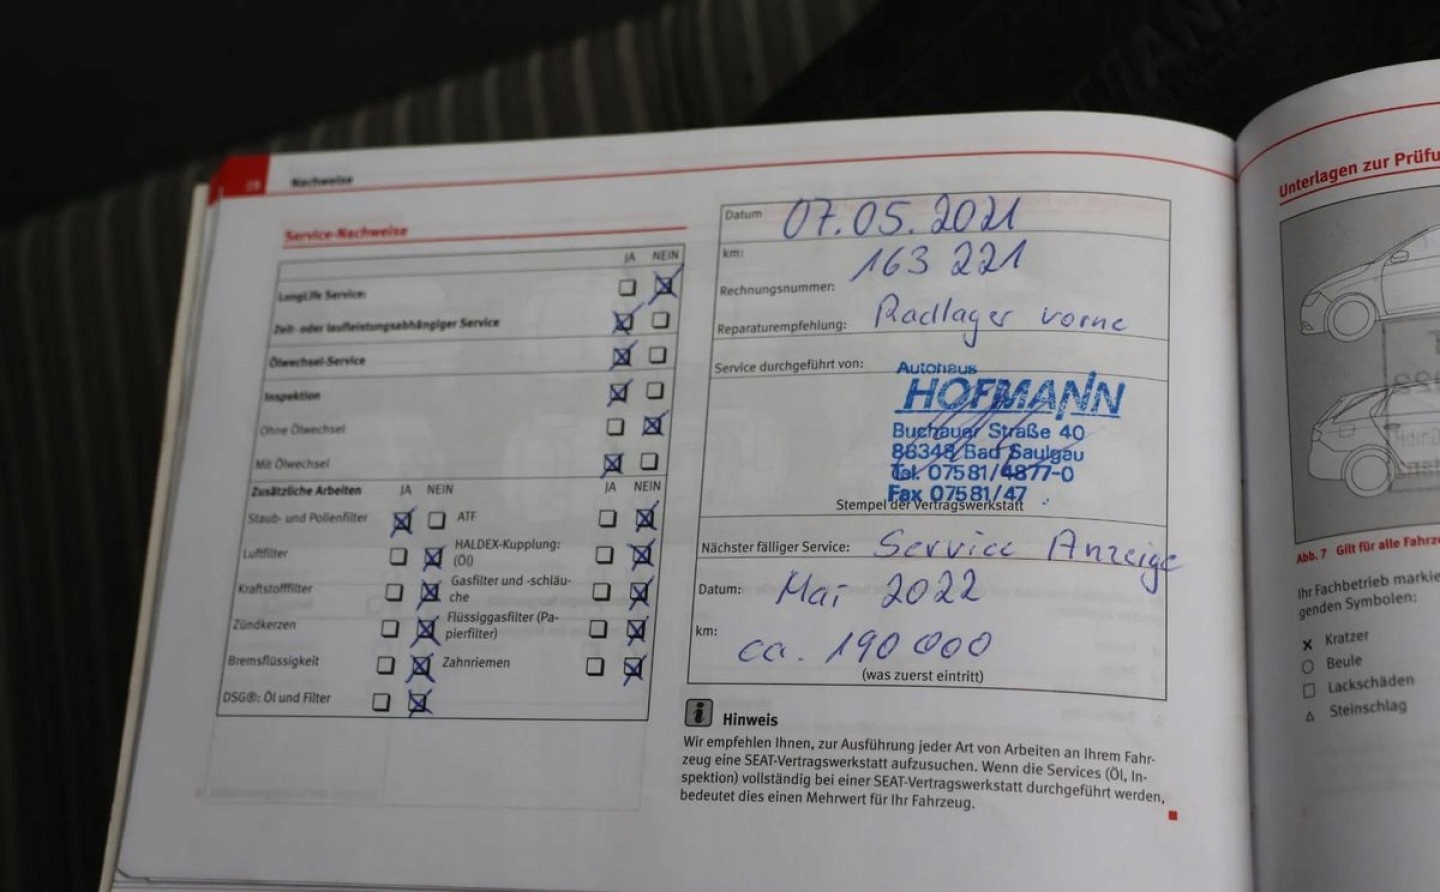 28 Nachweise
Service-Nachweise
JA NEIN
LongLife Service:
Zeit- oder laufleistungsabhängiger Service
Ölwechsel-Service
Inspektion
Ohne Ölwechsel
Mit Ölwechsel
Zusätzliche Arbeiten JA NEIN JA NEIN
Staub- und Pollenfilter
ATF
Luftfilter
HALDEX-Kupplung:
(Öl)
Kraftstofffilter
Gasfilter und -schläu-
che
Zündkerzen
Flüssiggasfilter (Pa-
pierfilter)
Bremsflüssigkeit
Zahnriemen
DSG®: Öl und Filter
Datum 07.05.2021
km: 163 221
Rechnungsnummer:
Reparaturempfehlung: Radlager vorne
Service durchgeführt von:
Autohaus
HOFMANN
Buchauer Straße 40
88348 Bad Saulgau
Tel. 07581/4877-0
Fax 07581/47
Stempel der Vertragswerkstatt
Nächster fälliger Service: Service Anzeige
Datum: Mai 2022
km: ca. 190 000
(was zuerst eintritt)
Hinweis
Wir empfehlen Ihnen, zur Ausführung jeder Art von Arbeiten an Ihrem Fahr-
zeug eine SEAT-Vertragswerkstatt aufzusuchen. Wenn die Services (Öl, In-
spektion) vollständig bei einer SEAT-Vertragswerkstatt durchgeführt werden,
bedeutet dies einen Mehrwert für Ihr Fahrzeug.
Unterlagen zur Prüfu
Abb. 7 Gilt für alle Fahrze
Ihr Fachbetrieb markie
genden Symbolen:
Kratzer
Beule
Lackschäden
Steinschlag